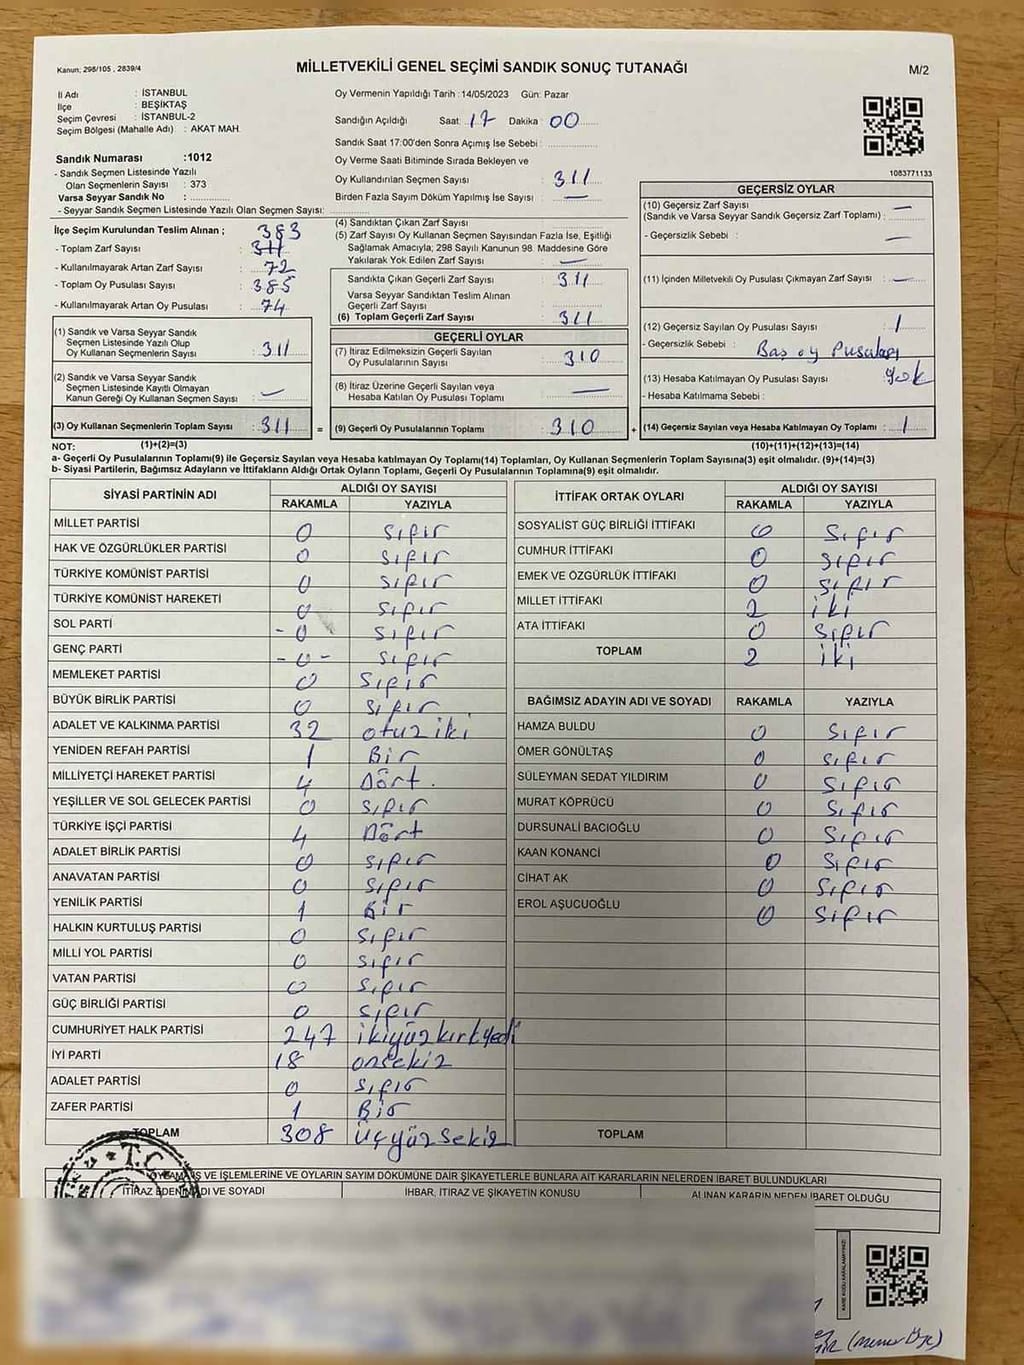 Kanun; 298/105 , 2839/4
MİLLETVEKİLİ GENEL SEÇİMİ SANDIK SONUÇ TUTANAĞI
M/2
İl Adı : İSTANBUL
İlçe : BEŞİKTAŞ
Seçim Çevresi : İSTANBUL-2
Seçim Bölgesi (Mahalle Adı) : AKAT MAH.
Sandık Numarası :1012
- Sandık Seçmen Listesinde Yazılı
Olan Seçmenlerin Sayısı : 373
Varsa Seyyar Sandık No :
- Seyyar Sandık Seçmen Listesinde Yazılı Olan Seçmen Sayısı:
Oy Vermenin Yapıldığı Tarih : 14/05/2023 Gün: Pazar
Sandığın Açıldığı Saat: 17 Dakika : 00
Sandık Saat 17:00'den Sonra Açımış İse Sebebi :
Oy Verme Saati Bitiminde Sırada Bekleyen ve
Oy Kullandırılan Seçmen Sayısı : 311
Birden Fazla Sayım Döküm Yapılmış İse Sayısı : —
1083771133
İlçe Seçim Kurulundan Teslim Alınan ; 383
- Toplam Zarf Sayısı : 311
- Kullanılmayarak Artan Zarf Sayısı : 72
- Toplam Oy Pusulası Sayısı : 385
- Kullanılmayarak Artan Oy Pusulası : 74
(1) Sandık ve Varsa Seyyar Sandık
Seçmen Listesinde Yazılı Olup
Oy Kullanan Seçmenlerin Sayısı : 311
(2) Sandık ve Varsa Seyyar Sandık
Seçmen Listesinde Kayıtlı Olmayan
Kanun Gereği Oy Kullanan Seçmen Sayısı : —
(3) Oy Kullanan Seçmenlerin Toplam Sayısı : 311 =
(4) Sandıktan Çıkan Zarf Sayısı :
(5) Zarf Sayısı Oy Kullanan Seçmen Sayısından Fazla İse, Eşitliği
Sağlamak Amacıyla; 298 Sayılı Kanunun 98. Maddesine Göre
Yakılarak Yok Edilen Zarf Sayısı : —
Sandıkta Çıkan Geçerli Zarf Sayısı : 311
Varsa Seyyar Sandıktan Teslim Alınan
Geçerli Zarf Sayısı :
(6) Toplam Geçerli Zarf Sayısı : 311
GEÇERLİ OYLAR
(7) İtiraz Edilmeksizin Geçerli Sayılan
Oy Pusulalarının Sayısı : 310
(8) İtiraz Üzerine Geçerli Sayılan veya
Hesaba Katılan Oy Pusulası Toplamı : —
(9) Geçerli Oy Pusulalarının Toplamı : 310 +
GEÇERSİZ OYLAR
(10) Geçersiz Zarf Sayısı —
(Sandık ve Varsa Seyyar Sandık Geçersiz Zarf Toplamı) :
- Geçersizlik Sebebi : —
(11) İçinden Milletvekili Oy Pusulası Çıkmayan Zarf Sayısı : —
(12) Geçersiz Sayılan Oy Pusulası Sayısı : 1
- Geçersizlik Sebebi : Boş oy Pusulası
(13) Hesaba Katılmayan Oy Pusulası Sayısı : yok
- Hesaba Katılmama Sebebi :
(14) Geçersiz Sayılan veya Hesaba Katılmayan Oy Toplamı : 1
NOT: (1)+(2)=(3) (10)+(11)+(12)+(13)=(14)
a- Geçerli Oy Pusulalarının Toplamı(9) ile Geçersiz Sayılan veya Hesaba Katılmayan Oy Toplamı(14) Toplamları, Oy Kullanan Seçmenlerin Toplam Sayısına(3) eşit olmalıdır. (9)+(14)=(3)
b- Siyasi Partilerin, Bağımsız Adayların ve İttifakların Aldığı Ortak Oyların Toplamı, Geçerli Oy Pusulalarının Toplamına(9) eşit olmalıdır.
SİYASİ PARTİNİN ADI ALDIĞI OY SAYISI
RAKAMLA YAZIYLA
MİLLET PARTİSİ 0 Sıfır
HAK VE ÖZGÜRLÜKLER PARTİSİ 0 Sıfır
TÜRKİYE KOMÜNİST PARTİSİ 0 Sıfır
TÜRKİYE KOMÜNİST HAREKETİ 0 Sıfır
SOL PARTİ -0 Sıfır
GENÇ PARTİ -0- Sıfır
MEMLEKET PARTİSİ 0 Sıfır
BÜYÜK BİRLİK PARTİSİ 0 Sıfır
ADALET VE KALKINMA PARTİSİ 32 otuz iki
YENİDEN REFAH PARTİSİ 1 Bir
MİLLİYETÇİ HAREKET PARTİSİ 4 Dört.
YEŞİLLER VE SOL GELECEK PARTİSİ 0 Sıfır
TÜRKİYE İŞÇİ PARTİSİ 4 Dört
ADALET BİRLİK PARTİSİ 0 Sıfır
ANAVATAN PARTİSİ 0 Sıfır
YENİLİK PARTİSİ 1 Bir
HALKIN KURTULUŞ PARTİSİ 0 Sıfır
MİLLİ YOL PARTİSİ 0 Sıfır
VATAN PARTİSİ 0 Sıfır
GÜÇ BİRLİĞİ PARTİSİ 0 Sıfır
CUMHURİYET HALK PARTİSİ 247 ikiyüz kırk yedi
İYİ PARTİ 18 onsekiz
ADALET PARTİSİ 0 Sıfır
ZAFER PARTİSİ 1 Bir
TOPLAM 308 üçyüz sekiz
İTTİFAK ORTAK OYLARI ALDIĞI OY SAYISI
RAKAMLA YAZIYLA
SOSYALİST GÜÇ BİRLİĞİ İTTİFAKI 0 Sıfır
CUMHUR İTTİFAKI 0 Sıfır
EMEK VE ÖZGÜRLÜK İTTİFAKI 0 Sıfır
MİLLET İTTİFAKI 2 iki
ATA İTTİFAKI 0 Sıfır
TOPLAM 2 iki
BAĞIMSIZ ADAYIN ADI VE SOYADI RAKAMLA YAZIYLA
HAMZA BULDU 0 Sıfır
ÖMER GÖNÜLTAŞ 0 Sıfır
SÜLEYMAN SEDAT YILDIRIM 0 Sıfır
MURAT KÖPRÜCÜ 0 Sıfır
DURSUNALİ BACIOĞLU 0 Sıfır
KAAN KONANCİ 0 Sıfır
CİHAT AK 0 Sıfır
EROL AŞUCUOĞLU 0 Sıfır
TOPLAM
T.C.
VE İŞLEMLERİNE VE OYLARIN SAYIM DÖKÜMÜNE DAİR ŞİKAYETLERLE BUNLARA AİT KARARLARIN NELERDEN İBARET BULUNDUKLARI
İTİRAZ EDENİN ADI VE SOYADI İHBAR, İTİRAZ VE ŞİKAYETİN KONUSU ALINAN KARARIN NEDEN İBARET OLDUĞU